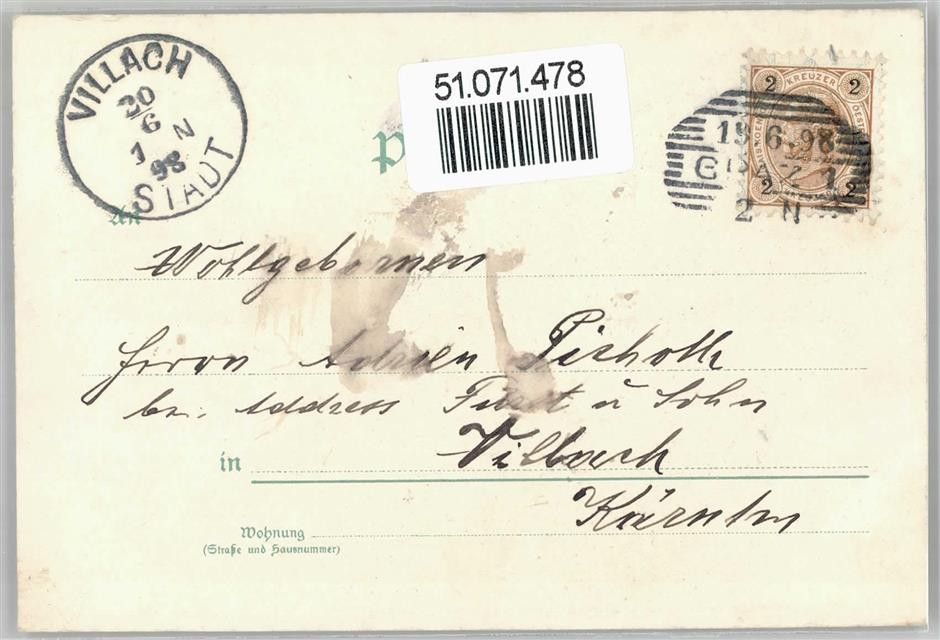 VILLACH
20
6
1 N
98
STADT
51.071.478
P
2 KREUZER 2
2 2
19 6.98
GRAZ 1
2 N
An
Wohlgebornen
Herrn Adrien
bei Address Fürst u Sohn
in Villach
Kärnten
Wohnung
(Straße und Hausnummer)